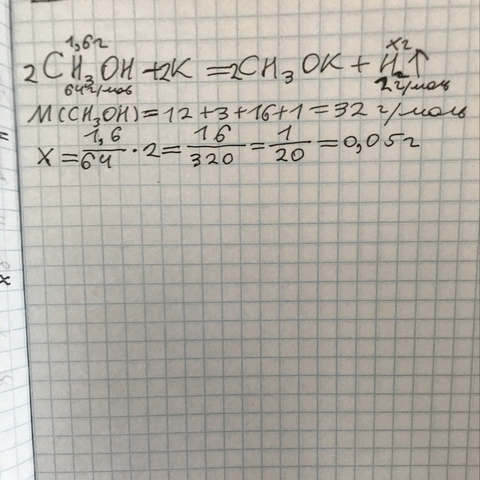 1,6г xг
2CH₃OH + 2K = 2CH₃OK + H₂↑
64г/моль 2г/моль
M(CH₃OH) = 12 + 3 + 16 + 1 = 32 г/моль
X = 1,6/64 · 2 = 16/320 = 1/20 = 0,05г